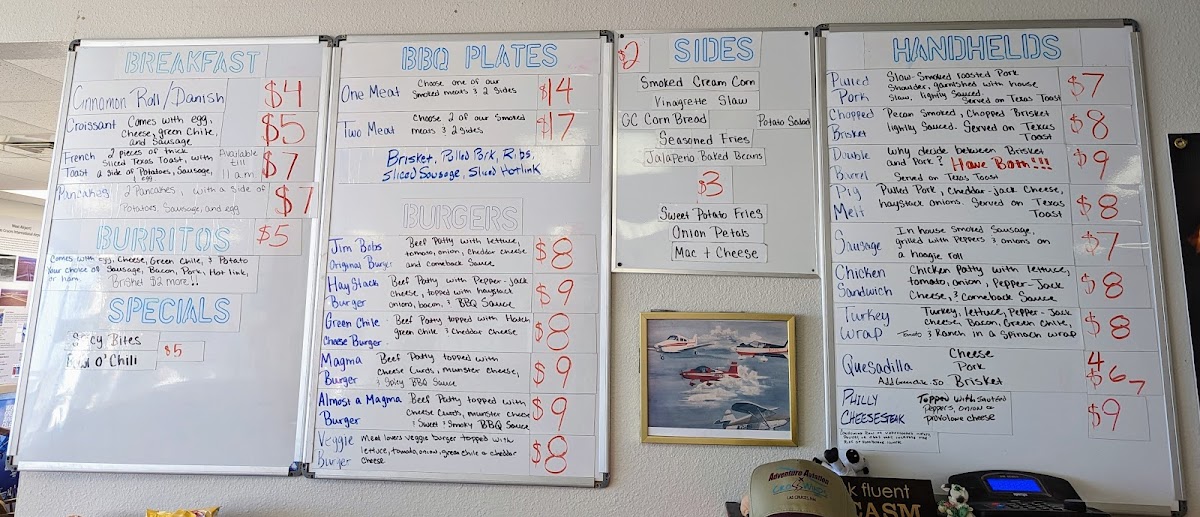 BREAKFAST
Cinnamon Roll/Danish $4
Croissant Comes with egg, $5
Cheese, green Chile,
and Sausage
French 2 pieces of thick Available $7
Toast Sliced Texas Toast, with till
a side of Potatoes, Sausage, 11 am
& egg
Pancakes 2 Pancakes, with a side of $7
Potatoes, Sausage, and egg
BURRITOS $5
Comes with egg, Cheese, Green Chile, & Potato
Your choice of Sausage, Bacon, Pork, Hot link,
or ham. Brisket $2 more!!
SPECIALS
Spicy Bites
Bowl O' Chili $5
BBQ PLATES
One Meat Choose one of our $14
Smoked meats & 2 Sides
Two Meat Choose 2 of our Smoked $17
meats & 2 sides
Brisket, Pulled Pork, Ribs,
Sliced Sausage, Sliced Hotlink
BURGERS
Jim Bobs Beef Patty with lettuce, $8
Original Burger tomato, onion, cheddar cheese
and comeback Sauce
Hay Stack Beef Patty with Pepper-jack $9
Burger Cheese, topped with haystack
onions, bacon, & BBQ Sauce
Green Chile Beef Patty topped with Hatch $8
Cheese Burger green chile & Cheddar Cheese
Magma Beef Patty topped with $9
Burger Cheese Curds, munster cheese,
& Spicy BBQ Sauce
Almost a Magma Beef Patty topped with $9
Burger Cheese Curds, munster cheese
& Sweet & Smoky BBQ Sauce
Veggie Meat lovers veggie burger topped with $8
Burger lettuce, tomato, onion, green chile & cheddar
cheese
$2 SIDES
Smoked Cream Corn
Vinagrette Slaw
GC Corn Bread Potato Salad
Seasoned Fries
Jalapeno Baked Beans
$3
Sweet Potato Fries
Onion Petals
Mac + Cheese
HANDHELDS
Pulled Slow-Smoked roasted Pork $7
Pork Shoulder, garnished with house
Slaw, lightly Sauced. Served on Texas Toast
Chopped Pecan Smoked, Chopped Brisket $8
Brisket lightly Sauced. Served on Texas
Toast
Double Why decide between Brisket $9
Barrel and Pork? Have Both!!!
Served on Texas Toast
Pig Pulled Pork, Cheddar-Jack Cheese, $8
Melt haystack onions. Served on Texas
Toast
Sausage In house Smoked Sausage, $7
grilled with Peppers & onions on
a hoagie roll
Chicken Chicken Patty with lettuce, $8
Sandwich tomato, onion, Pepper-Jack
Cheese, & Comeback Sauce
Turkey Turkey, lettuce, Pepper-Jack $8
Wrap cheese, Bacon, Green Chile,
Tomato & Ranch in a Spinach wrap
Quesadilla Cheese 4
Pork $6
Add Green chile .50 Brisket 7
PHILLY Topped with sauteed $9
CHEESESTEAK peppers, onion &
provolone cheese
Adventure Aviation
LAS CRUCES, NM
k fluent
CASM